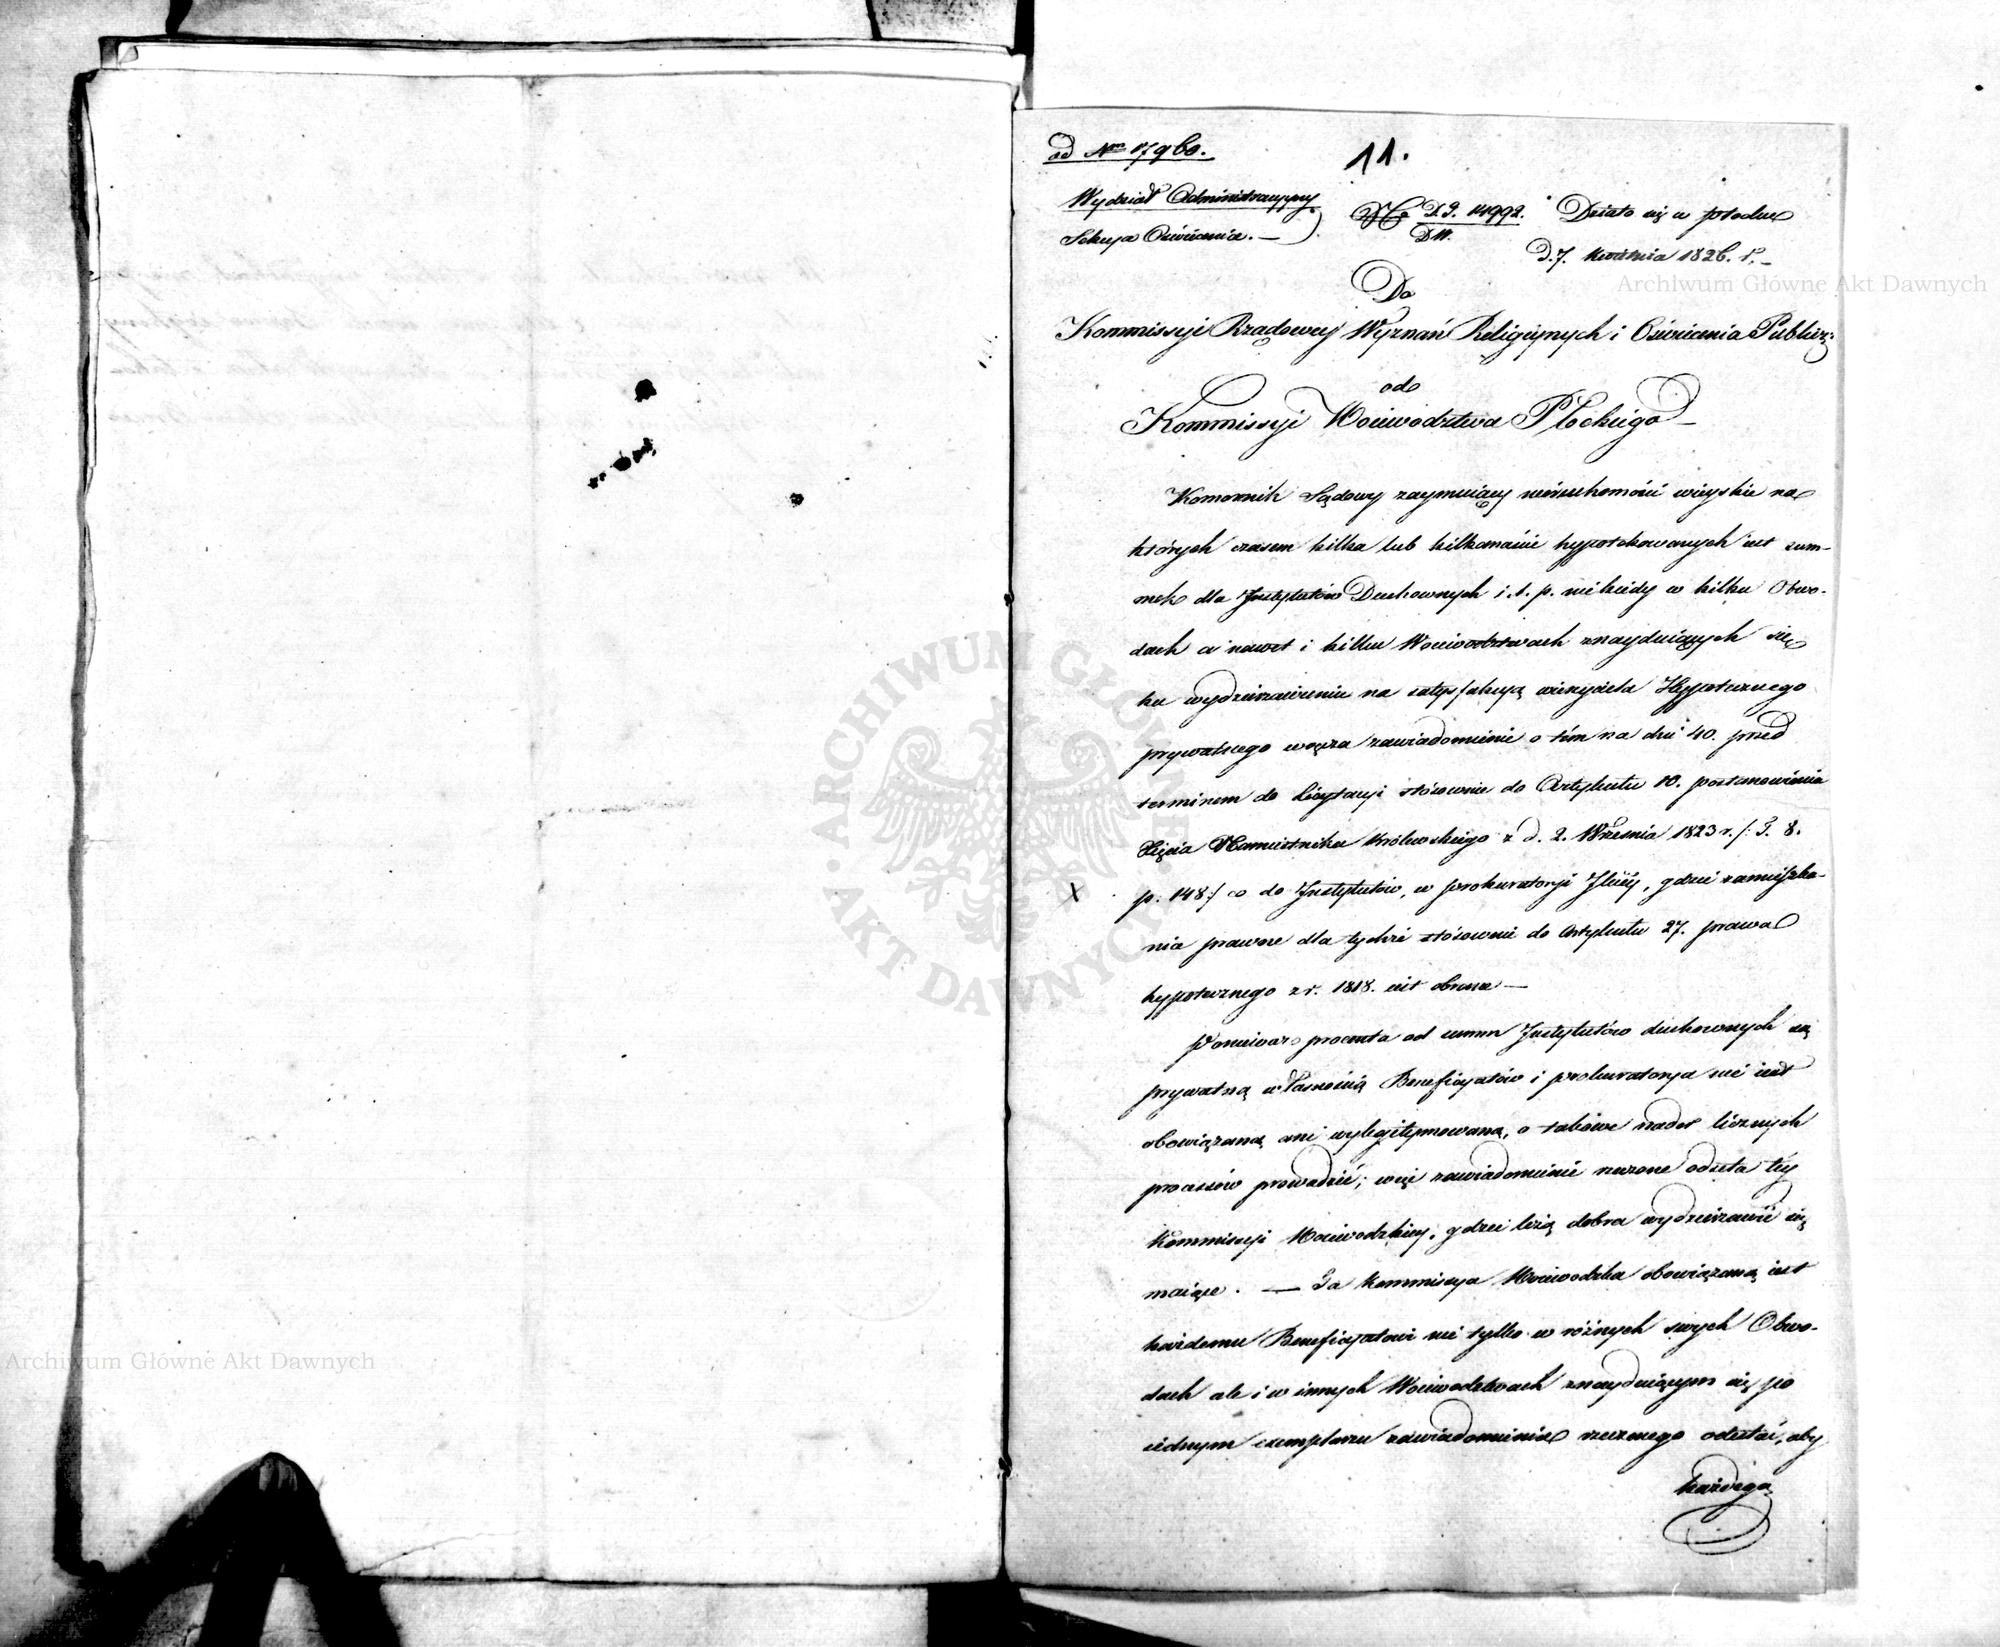 ad Nm 17960.
11.
Wydział Administracyjny
Sekcya Oświecenia. —
D.P. 14992.
Działo się w Płocku
D. 7. kwietnia 1826. r. –
Do
Kommissyi Rządowey Wyznań Religiynych i Oświecenia Publicz:
od
Kommissyi Woiewodztwa Płockiego –
Komornik Sądowy zaymuiący nieruchomości wieyskie na
których czasem kilka lub kilkanaście hypotekowanych iest sum-
mek dla Instytutów Duchownych i. t. p. niekiedy w kilku Obwo-
dach a nawet i kilku Woiewodztwach znayduiących się
ku wydzierzawieniu na satysfakcyą wierzyciela Hypotecznego
prywatnego wręcza zawiadomienie o tém na dni 40. przed
terminem do licytacyi stósownie do Artykułu 10. postanowienia
Xięcia Namiestnika Królewskiego z d. 2. Września 1823 r. /: T. 8.
p. 148:/ co do Instytutów, w prokuratoryi Jlney, gdzie zamieszka-
nia prawne dla tychże stósownie do Artykułu 27. prawa
hypotecznego z r. 1818. iest obrane —
Ponieważ procenta od summ Instytutów duchownych są
prywatną własnością Beneficyatów i prokuratorya nie iest
obowiązaną ani wylegitymowaną, o takowe nader licznych
processów prowadzić; więc zawiadomienie rzeczone odseła tey
Kommissyi Woiewodzkiey, gdzie leżą dobra wydzierzawić się
maiące. — Ta kommissya Woiewodzka obowiązaną iest
każdemu Beneficyatowi nie tylko w różnych swych Obwo-
dach ale i w innych Woiewodztwach znayduiącym się po
iednym exemplarzu zawiadomienia rzeczonego odesłać, aby
każdego
Archiwum Główne Akt Dawnych
Archiwum Główne Akt Dawnych
ARCHIWUM GŁÓWNE · AKT DAWNYCH ·